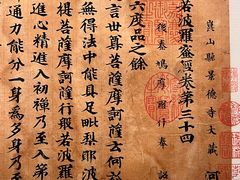 崑山縣景德寺大藏 河
若波羅蜜經卷第三十四
後秦鳩摩羅什奉 詔
六度品之餘
言世尊菩薩摩訶薩云何於
無得法中能具足毗梨耶波
提菩薩摩訶薩行般若波羅
進心精進入初禪乃至入第
通力能分一身為多身乃至